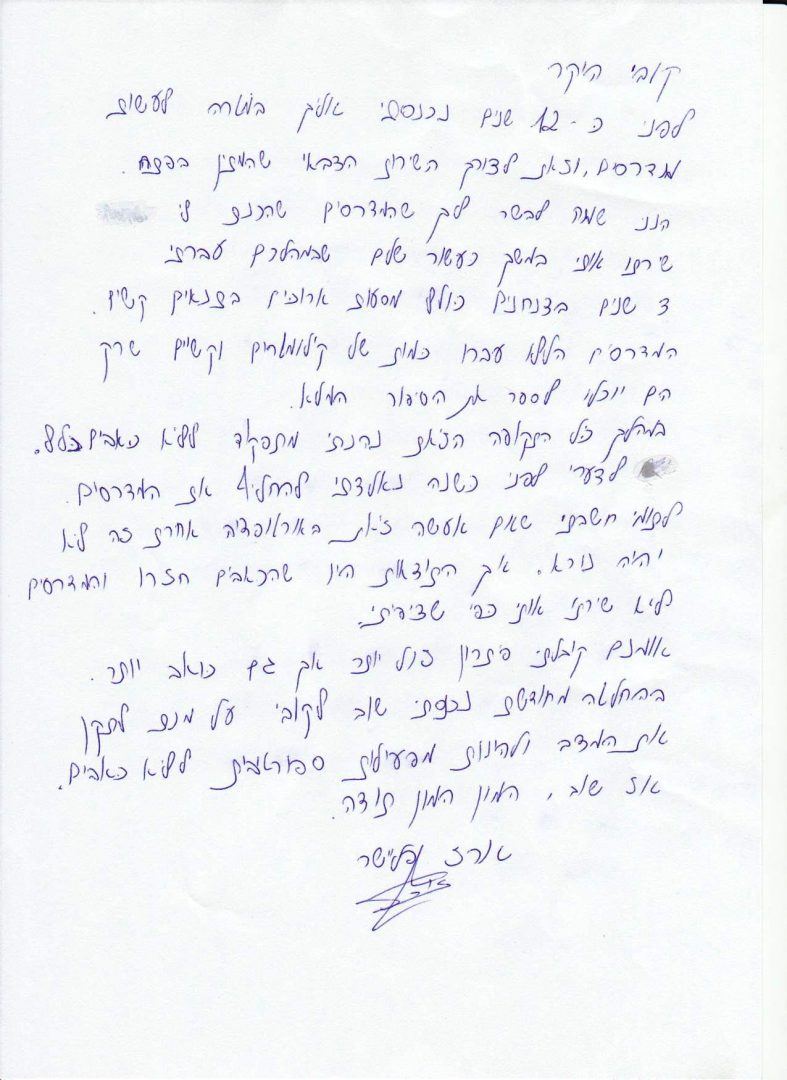 קובי היקר
לפני כ-12 שנים נכנסתי אליך במטרה לעשות
מדרסים, וזאת לצורך השירות הצבאי שהמתין בפתח.
הנני שמח לבשר לך שהמדרסים שהכנת לי
שירתו אותי במשך כעשור שלם שבמהלכם עברתי
3 שנים בצנחנים כולל מסעות ארוכים בתנאים קשים.
המדרסים הללו עברו כמות של קילומטרים וקשיים שרק
הם יוכלו לספר את הסיפור המלא.
במהלך כל התקופה הזאת נהנתי מתפקוד ללא כאבים כלל.
לצערי לפני כשנה נאלצתי להחליף את המדרסים.
לתומי חשבתי שאם אעשה זאת באורטופדיה אחרת זה לא
יהיה נורא. אך התוצאות היו שהכאבים חזרו והמדרסים
לא שירתו אותי כפי שציפיתי.
אומנם קיבלתי פיתרון זול יותר אך גם כואב יותר.
בהחלטה מחודשת נכנסתי שוב לקובי על מנת לתקן
את המצב ולהינות מפעילות ספורטיבית ללא כאבים.
אז שוב, המון המון תודה.
ארז